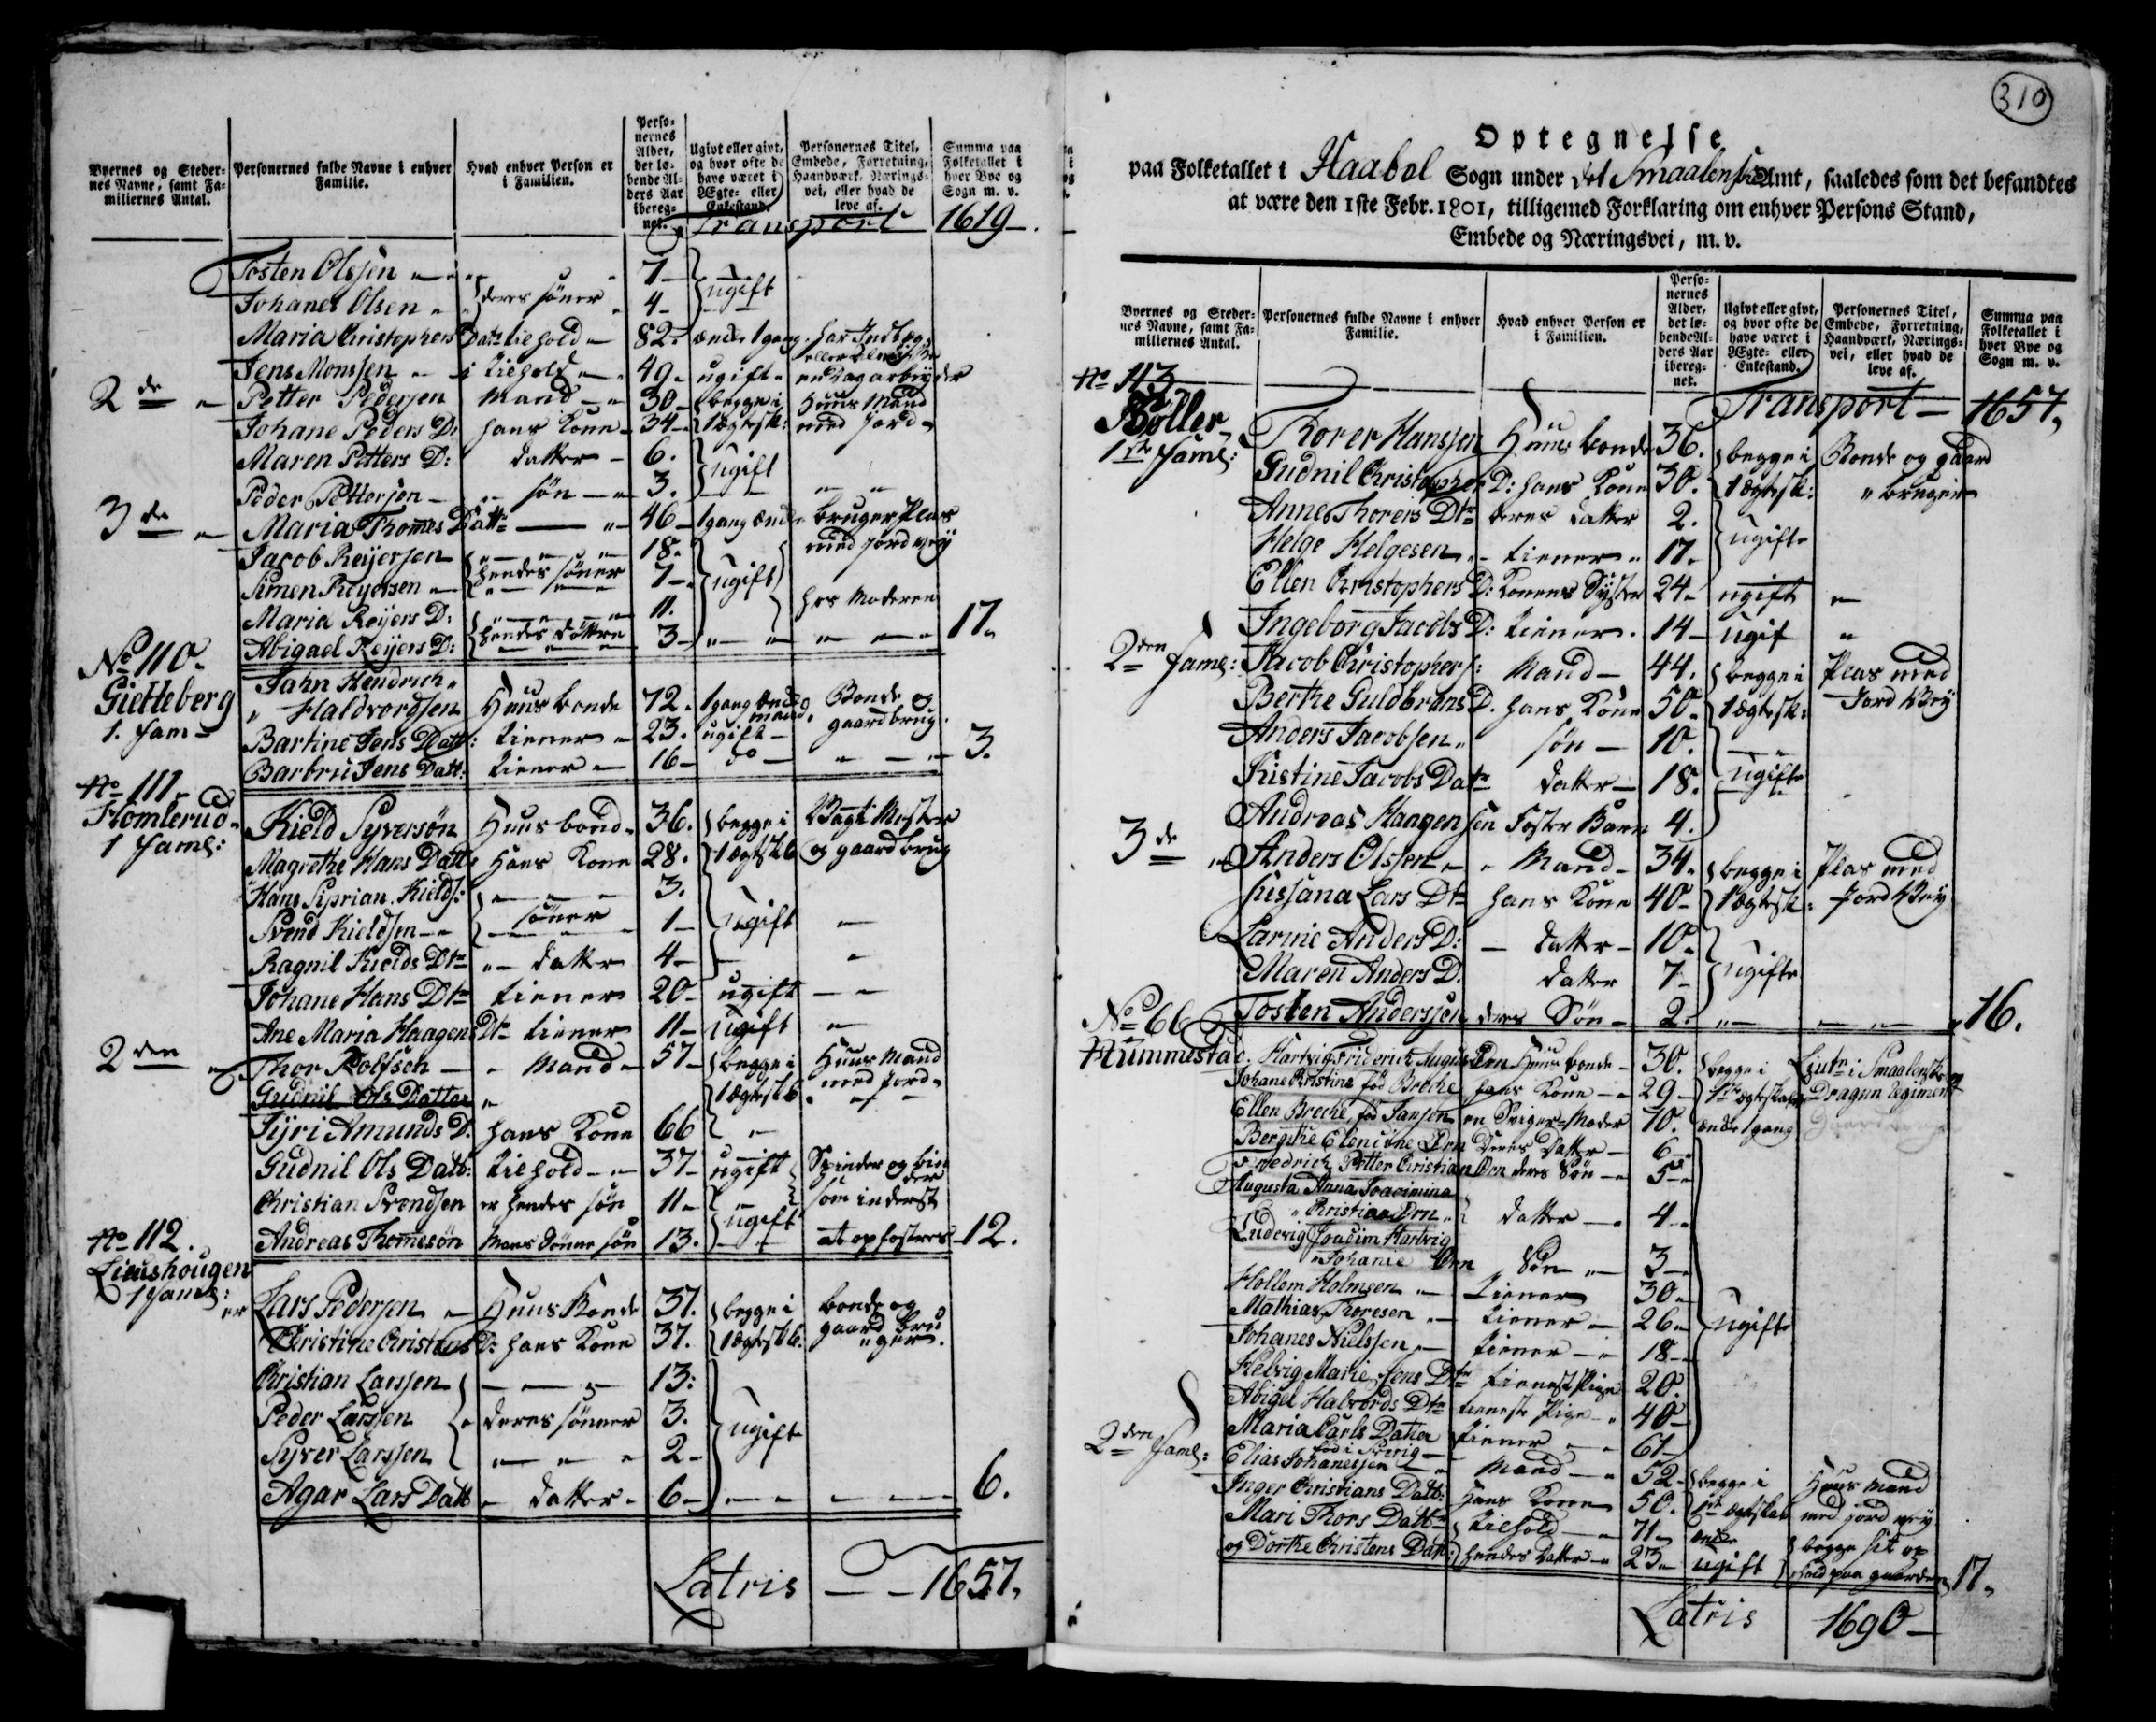 Byernes og Steder-
nes Navne, samt Fa-
miliernes Antal.
Personernes fulde Navne i enhver
Familie.
Hvad enhver Person er
i Familien.
Perso-
nernes
Alder,
det lø-
bende Al-
ders Aar
ibereg-
net.
Ugivt eller givt,
og hvor ofte de
have været i
Ægte- eller
Enkestand.
Personernes Titel,
Embede, Forretning,
Haandværk, Nærings-
vei, eller hvad de
leve af.
Summa paa
Folketallet i
hver Bye og
Sogn m. v.
Transport 1619
Tosten Olssen 7
Johanes Olsen deres sønner 4 ugift
Maria Christophers Datr tiehold 82. ænke 1 gang. har Indtæg
Jens Monssen i tiehold 49. ugift en Dagarbeyder
2de Petter Pedersen Mand 30 begge i Huus Mand
Johane Peders D: hans Kone 34 1 Ægtesk: med Jord
Maren Petters D: datter 6. ugift
Peder Pettersen søn 3.
3de Maria Thomes Dattr 46 1 gang ænke bruger Plas
med Jord vey
Jacob Reyersen 18.
Simen Reyersen hendes sønner 7 ugift
Maria Reyers D: 11. hos Moderen
Abigael Reyers D: hendes døttre 3 17.
No 110.
Gietteberg
1. Fam
Jahn Hendrich
Haldvordsen Huus bonde 72. 1 gang Enke mand. Bonde og gaardbrug.
Bartine Jens Datt: tiener 23. ugift
Barbru Jens Datt: tiener 16 do 3.
No 111
Homlerud
1 Faml:
Kield Syversøn Huus bond 36. begge i Vagt Mester
Magrethe Hans Datt Hans Kone 28. 1 ægtskb og gaard brug
Hans Siprian Kields: 3.
Svend Kieldsen sønner 1 ugift
Ragnil Kields Dtr datter 4
Johane Hans Dtr tiener 20 ugift
Ane Maria Haagens Dtr tiener 11 ugift
2den Thor Rolfsen Mand 57 begge i Huus Mand
Gudnil Ols Datter 1 ægtskb med Jord
Tyri Amunds D. hans Kone 66
Gudnil Ols Datt: tiehold 37 ugift Spinder og bin
der
Christian Svendsen er hendes søn 11 som inderst
Andreas Thomesøn Mans Sønne søn 13. ugift at opfostres 12.
No 112.
Liaushougen
1 Famle:
er Lars Pedersen Huus Bonde 37. begge i bonde og
Christine Christens D: hans Kone 37. 1 ægtskb. gaard bru
ger.
Christian Larssen 13:
Peder Larssen deres sønner 3. ugift
Syver Larssen 2
Agar Lars Datt datter 6 6.
Latris 1657.
310
Optegnelse
paa Folketallet i Haabøl Sogn under det Smaalenske Amt, saaledes som det befandtes
at være den 1ste Febr. 1801, tilligemed Forklaring om enhver Persons Stand,
Embede og Næringsvei, m. v.
Byernes og Steder-
nes Navne, samt Fa-
miliernes Antal.
Personernes fulde Navne i enhver
Familie.
Hvad enhver Person er
i Familien.
Perso-
nernes
Alder,
det lø-
bende Al-
ders Aar
ibereg-
net.
Ugivt eller givt,
og hvor ofte de
have været i
Ægte- eller
Enkestand.
Personernes Titel,
Embede, Forretning,
Haandværk, Nærings-
vei, eller hvad de
leve af.
Summa paa
Folketallet i
hver Bye og
Sogn m. v.
No 113
Bøller
Transport 1657.
1ste Faml:
Thorer Hanssen Huus bonde 36. begge i Bonde og gaard
Gudnil Christopher D: hans Kone 30. 1 ægtesk: bruger
Anne Thorers Dtr deres datter 2.
Helge Helgesen tiener 17. ugifte
Ellen Christophers D: Konens Syster 24 ugift
Ingeborg Jacobs D: tiener 14 ugif
2den Faml: Jacob Christophers: Mand 44. begge i Plas med
Berthe Guldbrans D. hans Kone 50 1 ægtesk: Jord Vey
Anders Jacobsen søn 10.
Kistine Jacobs Datr datter 18. ugifte
Andreas Haagensen Foster Barn 4.
3de Anders Olssen Mand 34. begge i Plas med
Sussana Lars Dtr hans Kone 40 1 ægtesk: Jord Vey
Larine Anders D: datter 10
Maren Anders D. datter 7 ugifte
Tosten Anderssen deres Søn 2. 16.
No 66
Hummestad. Hartvig Friderich August Orn Huus bonde 30. begge i Liutn i Smaalenske
Johane Kristine fød Breche hans Kone 29 1ste ægteskab Dragun Regiment
Ellen Breche fød Jansen en Sviger-Moder 70. ænke 1 gang
Bergithe Elenithe Orn Deres Datter 6
Fredrich Petter Christian Orn deres Søn 5
Augusta Anna Joacimina
Christiaa Orn datter 4
Ludevig Joacim Hartvig
Johanie Orn Søn 3
Hollem Holmsen tiener 30
Mathias Thoresen tiener 26 ugifte
Johanes Nielssen tiener 18
Helvig Marie Jens Dtr tienest Pige 20.
Abigel Halvords Dtr tieneste Pige 40
Maria Carls Datter tiener 61
fød i Sverig
2den Faml: Elias Johanessen Mand 52 begge i Huus Mand
Inger Christians Datt: Hans Kone 50. 1ste ægtskab med jord vey
Mari Thors Dattr tiehold 71 ænke begge sit op
og Dorthe Christens Datt: hendes datter 23 ugift hold paa gaarden 17.
Latris 1690